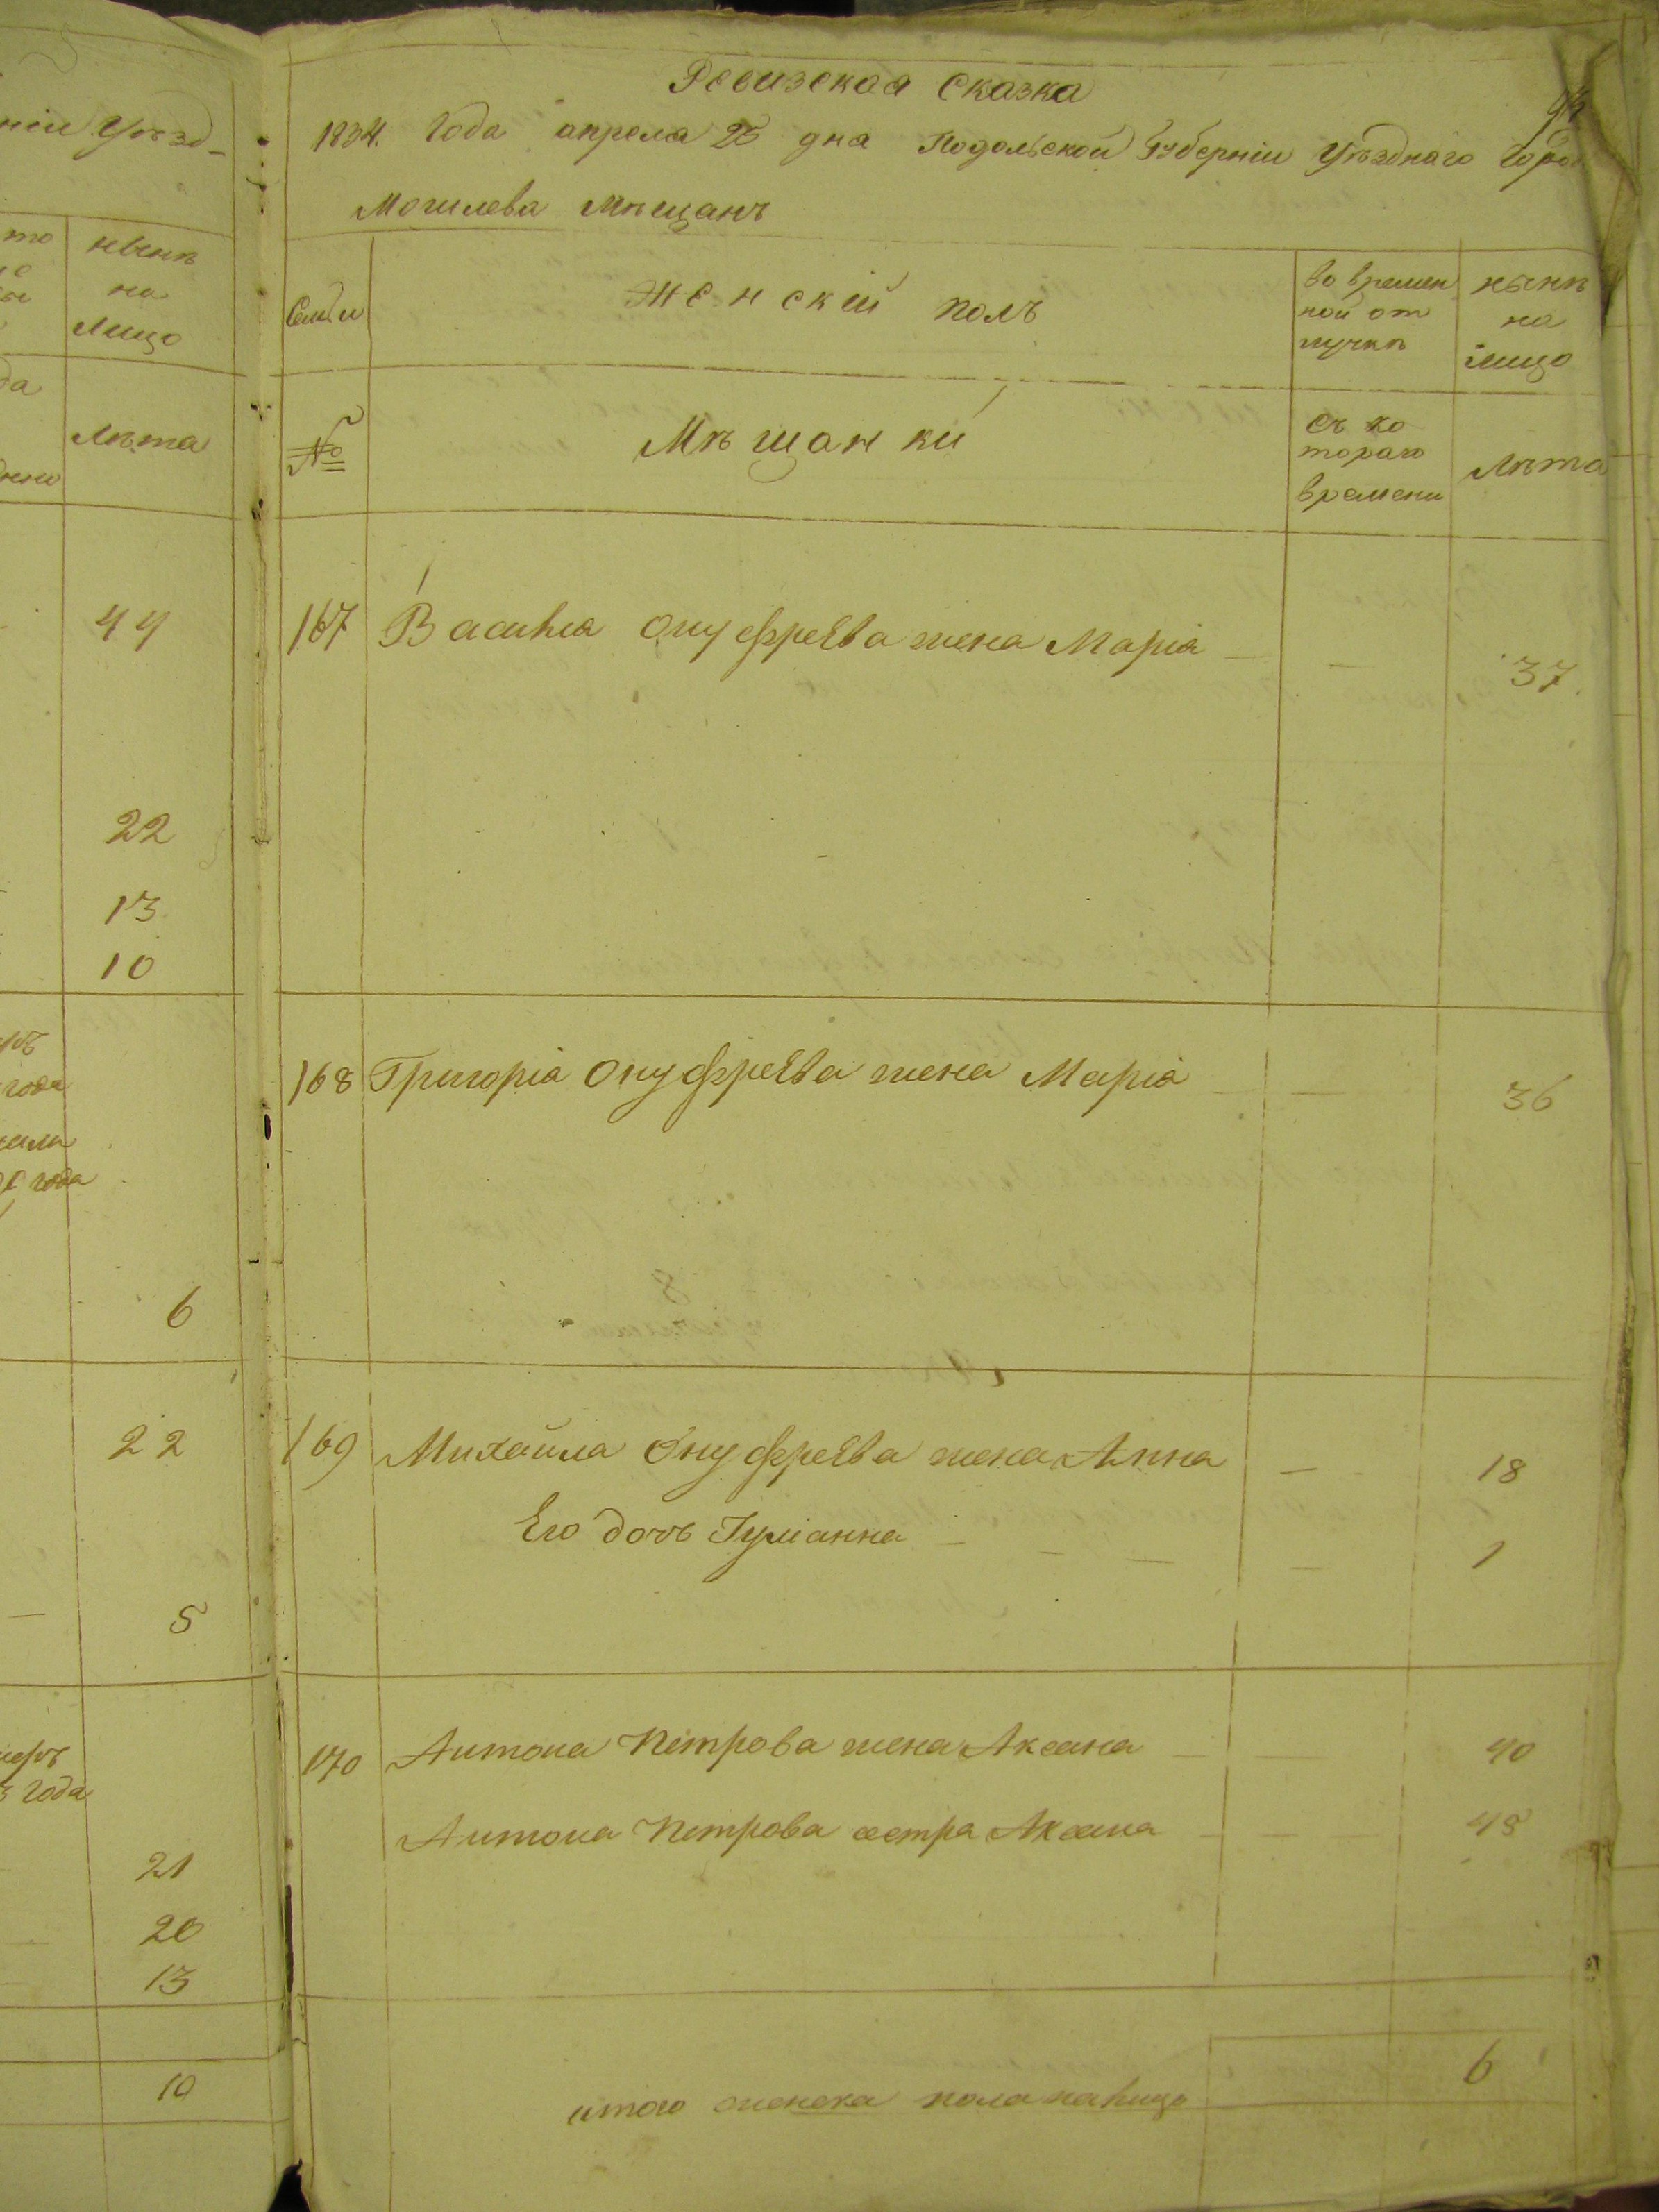 ніи Уѣзд-
нынѣ
на
лицо
лѣта
44
22
13
10
года
года
6
22
5
года
21
20
13
10
Ревизская Сказка
1834. Года апреля 25 дна Подольской Губерніи Уѣзднаго Горо
Могилева Мѣщанъ
Семьи
Женскій полъ
во времен
ной от
лучкѣ
нынѣ
на
лицо
№
Мѣщанки
съ ко
тораго
времени
лѣта
167 Василия Онуфрева жена Маріа — — 37
168 Григоріа Онуфрева жена Маріа — — 36
169 Михайла Онуфрева жена Анна — 18
Его дочь Іулианна — — — — 1
170 Антона Петрова жена Аксана — — 40
Антона Петрова сестра Аксана — — 45
итого женска пола налицо 6